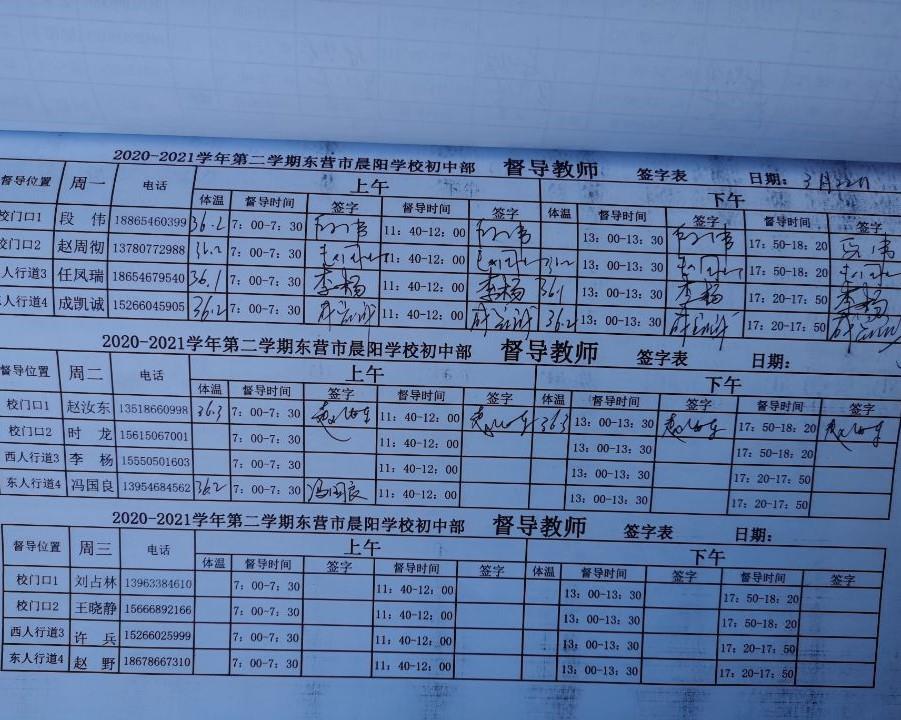 2020-2021学年第二学期东营市晨阳学校初中部 督导教师 签字表 日期: 3月22日
督导位置 周一 电话 上午 下午
体温 督导时间 签字 督导时间 签字 体温 督导时间 签字 督导时间 签字
校门口1 段 伟 18865460399 36.2 7: 00-7: 30 11: 40-12: 00 13: 00-13: 30 17: 50-18: 20
校门口2 赵周彻 13780772988 36.2 7: 00-7: 30 11: 40-12: 00 13: 00-13: 30 17: 50-18: 20
人行道3 任凤瑞 18654679540 36.1 7: 00-7: 30 李杨 11: 40-12: 00 李杨 36.1 13: 00-13: 30 李杨 17: 20-17: 50 李杨
人行道4 成凯诚 15266045905 36.2 7: 00-7: 30 成凯诚 11: 40-12: 00 成凯诚 36.2 13: 00-13: 30 成凯诚 17: 20-17: 50 成凯诚
2020-2021学年第二学期东营市晨阳学校初中部 督导教师 签字表 日期:
督导位置 周二 电话 上午 下午
体温 督导时间 签字 督导时间 签字 体温 督导时间 签字 督导时间 签字
校门口1 赵汝东 13518660998 36.3 7: 00-7: 30 赵汝东 11: 40-12: 00 赵汝东 36.3 13: 00-13: 30 赵汝东 17: 50-18: 20 赵汝东
校门口2 时 龙 15615067001 7: 00-7: 30 11: 40-12: 00 13: 00-13: 30 17: 50-18: 20
西人行道3 李 杨 15550501603 7: 00-7: 30 11: 40-12: 00 13: 00-13: 30 17: 20-17: 50
东人行道4 冯国良 13954684562 36.2 7: 00-7: 30 冯国良 11: 40-12: 00 13: 00-13: 30 17: 20-17: 50
2020-2021学年第二学期东营市晨阳学校初中部 督导教师 签字表 日期:
督导位置 周三 电话 上午 下午
体温 督导时间 签字 督导时间 签字 体温 督导时间 签字 督导时间 签字
校门口1 刘占林 13963384610 7: 00-7: 30 11: 40-12: 00 13: 00-13: 30 17: 50-18: 20
校门口2 王晓静 15666892166 7: 00-7: 30 11: 40-12: 00 13: 00-13: 30 17: 50-18: 20
西人行道3 许 兵 15266025999 7: 00-7: 30 11: 40-12: 00 13: 00-13: 30 17: 20-17: 50
东人行道4 赵 野 18678667310 7: 00-7: 30 11: 40-12: 00 13: 00-13: 30 17: 20-17: 50